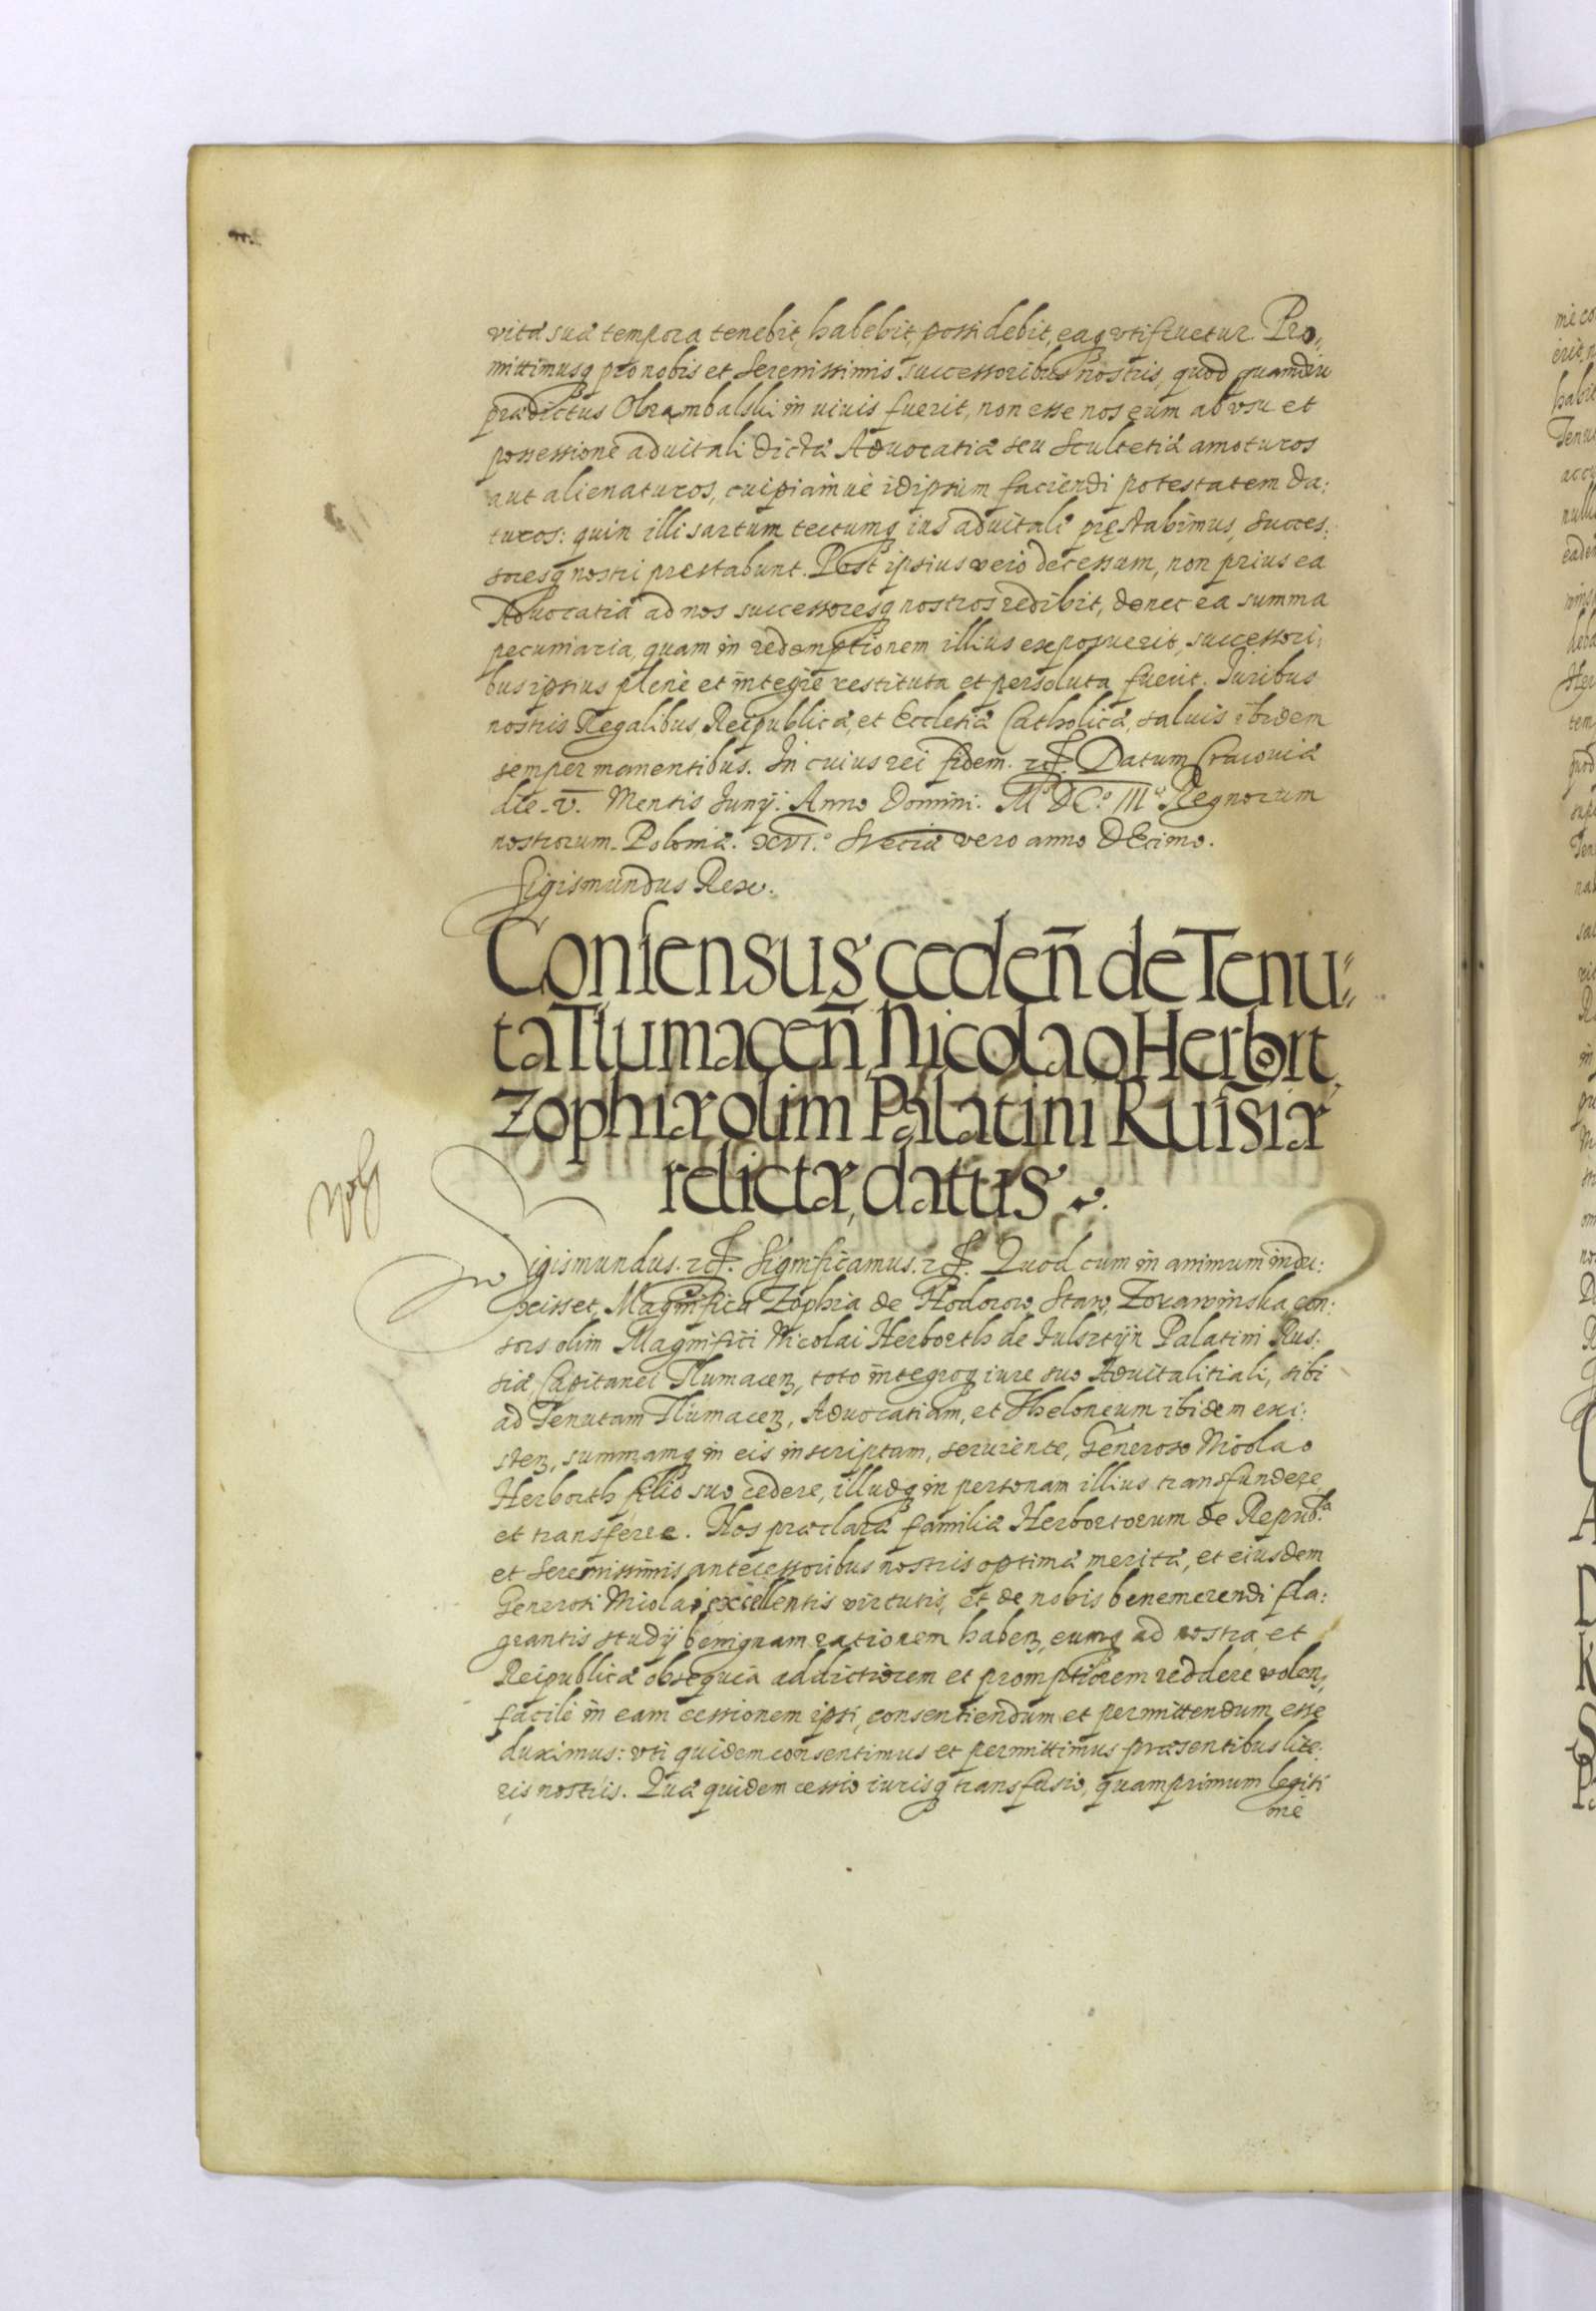 vitæ suæ tempora tenebit, habebit, possidebit, eaq vtifruetur. Pro,,
mittimusq pro nobis et Serenissimis successoribus nostris, quod quamdiu
prædictus Obrąmbalski in viuis fuerit, non esse nos eum ab vsu et
possessione aduitali dictæ Aduocatiæ seu Scultetiæ amoturos
aut alienaturos, cuipiamuè idipsum faciendi potestatem da:
turos: quin illi sartum tectumq ius aduitale pręstabimus, succes:
soresq nostri prestabunt. Post ipsius vero decessum, non prius ea
Aduocatia ad nos successoresq nostros redibit, donec ea summa
pecuniaria, quam in redemptionem illius exposuerit, successori:
bus ipsius plenè et integrè restituta et persoluta fuerit. Iuribus
nostris Regalibus, Reipublicæ, et Ecclesiæ Catholicæ, saluis ibidem
semper manentibus. In cuius rei fidem. etc. Datum Cracouiæ
die. v. Mensis Junij. Anno Domini. Mº DCº. IIIº Regnorum
nostrorum. Poloniæ. XVIº. Sveciæ vero anno DEcimo.
Sigismundus Rex.
Consensus ceden̄ de Tenu,,
ta Tlumacen̄ Nicolao Herbort,
Zophiæ olim Palatini Russiæ
relictæ, datus.
Sigismundus. etc. Significamus. etc. Quod cum in animum indu:
xisset, Magnifica Zophia de Hodorow Staw, Zorawinska, con:
sors olim Magnifici Nicolai Herborth de Fulsztijn Palatini Rus:
siæ, Capitanei Tlumacen, toto integroq iure suo Aduitalitiali, sibi
ad Tenutam Tlumacen, Aduocatiam, et Theloneum ibidem exi:
sten, summamq in eis inscriptam, seruiente, Generoso Nicolao
Herborth filio suo cedere, illudq in personam illius transfundere
et transferre. Nos præclaræ familiæ Herbortorum de Repub.ca
et Serenissimis antecessoribus nostris optimæ meritæ, et eiusdem
Generosi Nicolai excellentis virtutis, et de nobis benemerendi fla:
grantis studij benignam rationem haben, eumq ad nostra et
Reipublicæ obsequia addictiorem et promptiorem reddere volen,
facilè in eam cessionem ipsi, consentiendum et permittendum esse
duximus: vti quidem consentimus et permittimus præsentibus lite
ris nostris. Quæ quidem cessio iurisq transfusio, quamprimum legiti
me